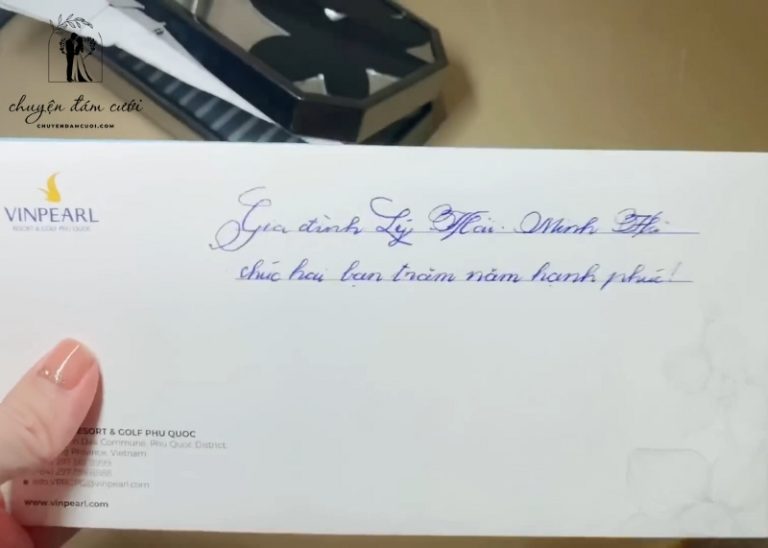 chuyện đám cưới
CHUYENDAMCUOI.COM
VINPEARL
RESORT & GOLF PHU QUOC
Gia đình Lý Hải - Minh Hà
chúc hai bạn trăm năm hạnh phúc!
RESORT & GOLF PHU QUOC
Dai Commune, Phu Quoc District,
Province, Vietnam
info.VPRCPQ@vinpearl.com
www.vinpearl.com